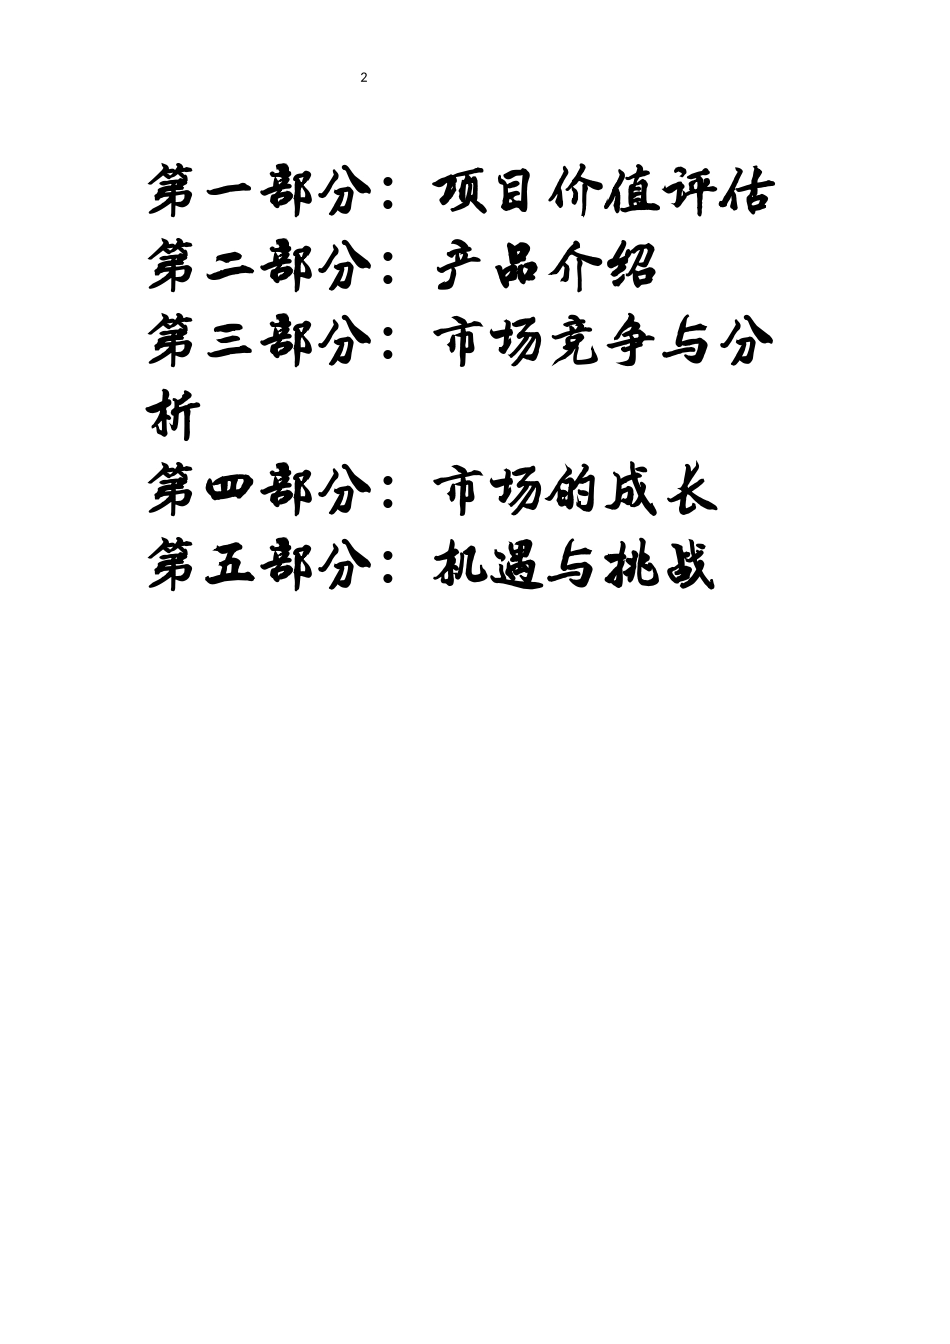 2
第一部分：项目价值评估
第二部分：产品介绍
第三部分：市场竞争与分
析
第四部分：市场的成长
第五部分：机遇与挑战